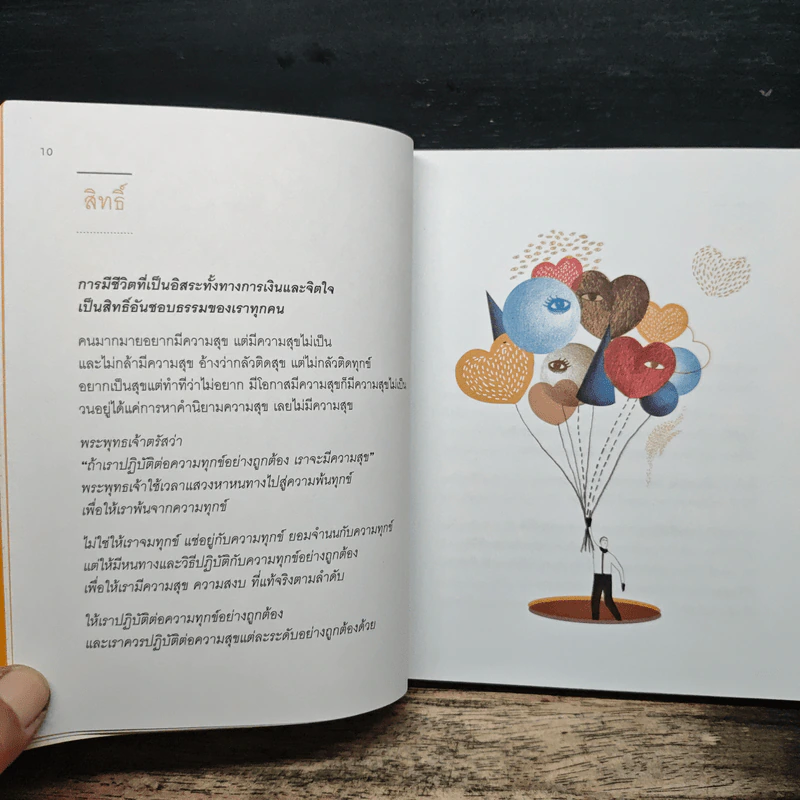 10
สิทธิ์
การมีชีวิตที่เป็นอิสระทั้งทางการเงินและจิตใจ
เป็นสิทธิ์อันชอบธรรมของเราทุกคน
คนมากมายอยากมีความสุข แต่มีความสุขไม่เป็น
และไม่กล้ามีความสุข อ้างว่ากลัวติดสุข แต่ไม่กลัวติดทุกข์
อยากเป็นสุขแต่ทำทีว่าไม่อยาก มีโอกาสมีความสุขก็มีความสุขไม่เป็น
วนอยู่ได้แค่การหาคำนิยามความสุข เลยไม่มีความสุข
พระพุทธเจ้าตรัสว่า
“ถ้าเราปฏิบัติต่อความทุกข์อย่างถูกต้อง เราจะมีความสุข”
พระพุทธเจ้าใช้เวลาแสวงหาหนทางไปสู่ความพ้นทุกข์
เพื่อให้เราพ้นจากความทุกข์
ไม่ใช่ให้เราจมทุกข์ แช่อยู่กับความทุกข์ ยอมจำนนกับความทุกข์
แต่ให้มีหนทางและวิธีปฏิบัติกับความทุกข์อย่างถูกต้อง
เพื่อให้เรามีความสุข ความสงบ ที่แท้จริงตามลำดับ
ให้เราปฏิบัติต่อความทุกข์อย่างถูกต้อง
และเราควรปฏิบัติต่อความสุขแต่ละระดับอย่างถูกต้องด้วย